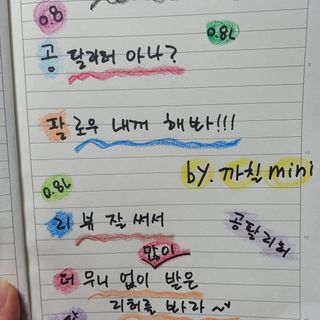 0.8
0.8L
공 달리러 아나?
팔로우 내꺼 해봐!!!
by. 까칠mini
0.8L
리뷰 잘 써서
공팔리터
많이
터무니 없이 받은
리터를 바라~